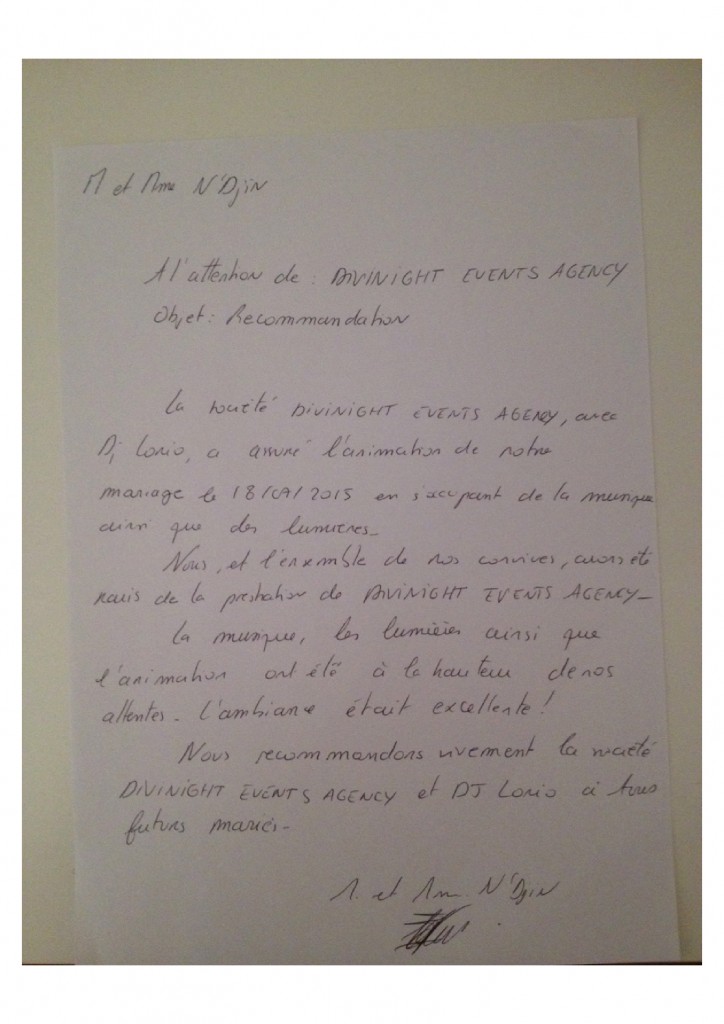 M et Mme N'Djin
A l'attention de : DIVINIGHT EVENTS AGENCY
Objet : Recommandation
La société DIVINIGHT EVENTS AGENCY, avec
Dj Lorio, a assuré l'animation de notre
mariage le 18/07/2015 en s'occupant de la musique
ainsi que des lumières_
Nous, et l'ensemble de nos convives, avons été
ravis de la prestation de DIVINIGHT EVENTS AGENCY_
La musique, les lumières ainsi que
l'animation ont été à la hauteur de nos
attentes_ L'ambiance était excellente !
Nous recommandons vivement la société
DIVINIGHT EVENTS AGENCY et DJ Lorio à tous
futurs mariés_
M. et Mme N'Djin